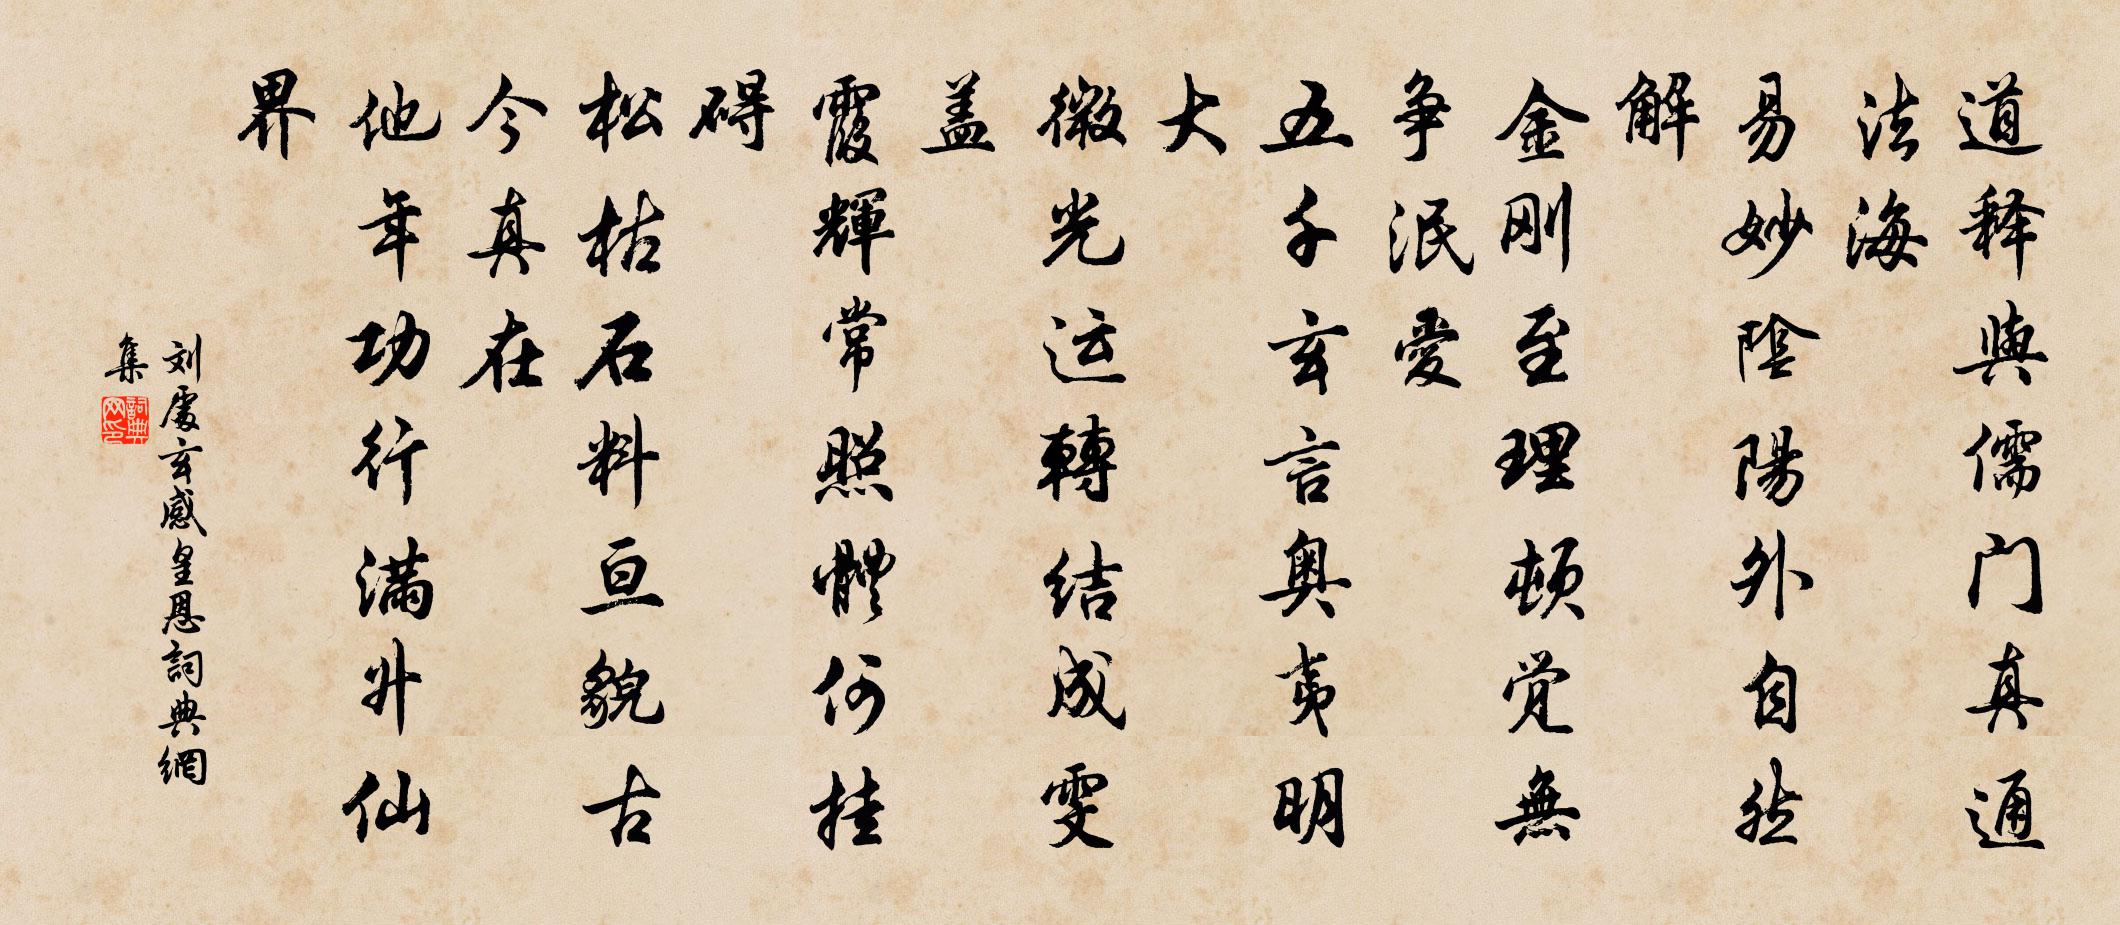 道释與儒门真通
法海
易妙陰陽外自然
解
金刚至理顿觉無
争泯愛
五千玄言奥夷明
大
微光运轉结成雯
盖
霞輝常照體何挂
碍
松枯石料亘貌古
今真在
他年功行满升仙
界
刘處玄感皇恩詞典網
集
詞典网印